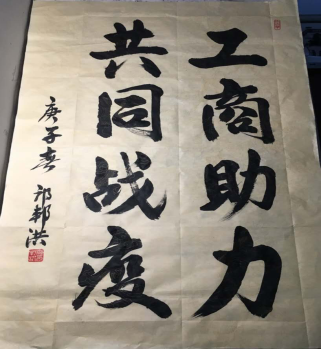 工商助力
共同战疫
庚子春
祁邦洪